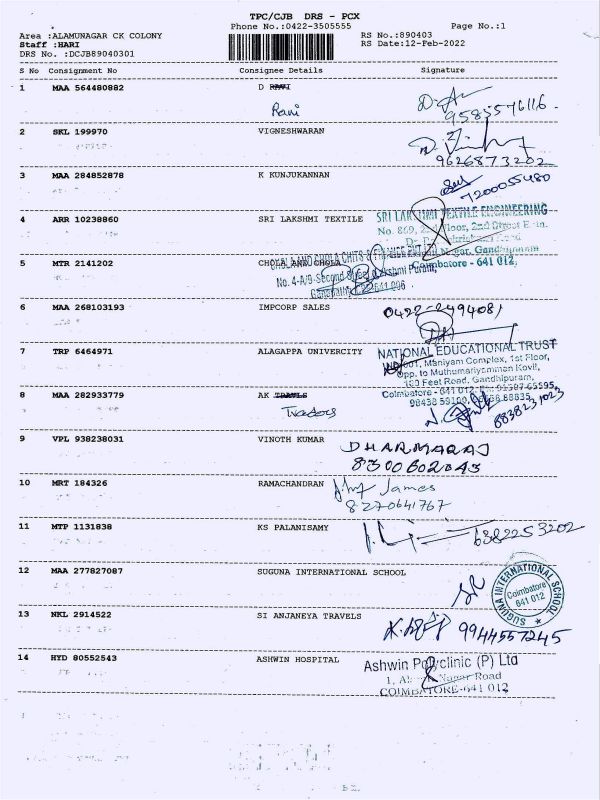 TPC/CJB DRS - PCX
Phone No.:0422-3505555 Page No.:1
Area :ALAMUNAGAR CK COLONY RS No.:890403
Staff :HARI RS Date:12-Feb-2022
DRS No. :DCJB89040301
S No Consignment No Consignee Details Signature
1 MAA 564480882 D RAVI
Ravi 9585576116.
2 SKL 199970 VIGNESHWARAN
9626873202
3 MAA 284852878 K KUNJUKANNAN
7200055480
4 ARR 10238860 SRI LAKSHMI TEXTILE SRI LAKSHMI TEXTILE ENGINEERING
No. 869, 2nd Floor, 2nd Street Extn.
Nagar, Gandhipuram
Coimbatore - 641 012.
5 MTR 2141202 CHOLA AND CHOLA
CHOLA AND CHOLA CHITS & FINANCE
No. 4-A/9-Second Street, Lakshmi Puram,
Ganapathy, 641 006
6 MAA 268103193 IMPCORP SALES 0422-2494081
7 TRP 6464971 ALAGAPPA UNIVERCITY NATIONAL EDUCATIONAL TRUST
Maniyam Complex, 1st Floor,
Opp. to Muthumariyamman Kovil,
100 Feet Road, Gandhipuram,
Coimbatore - 641 012
8 MAA 282933779 AK TRAVELS
Traders 8838231023
9 VPL 938238031 VINOTH KUMAR DHARMARAJ
8300602043
10 MRT 184326 RAMACHANDRAN James
8270641767
11 MTP 1131838 KS PALANISAMY 6382253202
12 MAA 277827087 SUGUNA INTERNATIONAL SCHOOL
SUGUNA INTERNATIONAL SCHOOL
Coimbatore
641 012
13 NKL 2914522 SI ANJANEYA TRAVELS 9944557245
14 HYD 80552543 ASHWIN HOSPITAL Ashwin Polyclinic (P) Ltd
Nagar Road
COIMBATORE-641 012